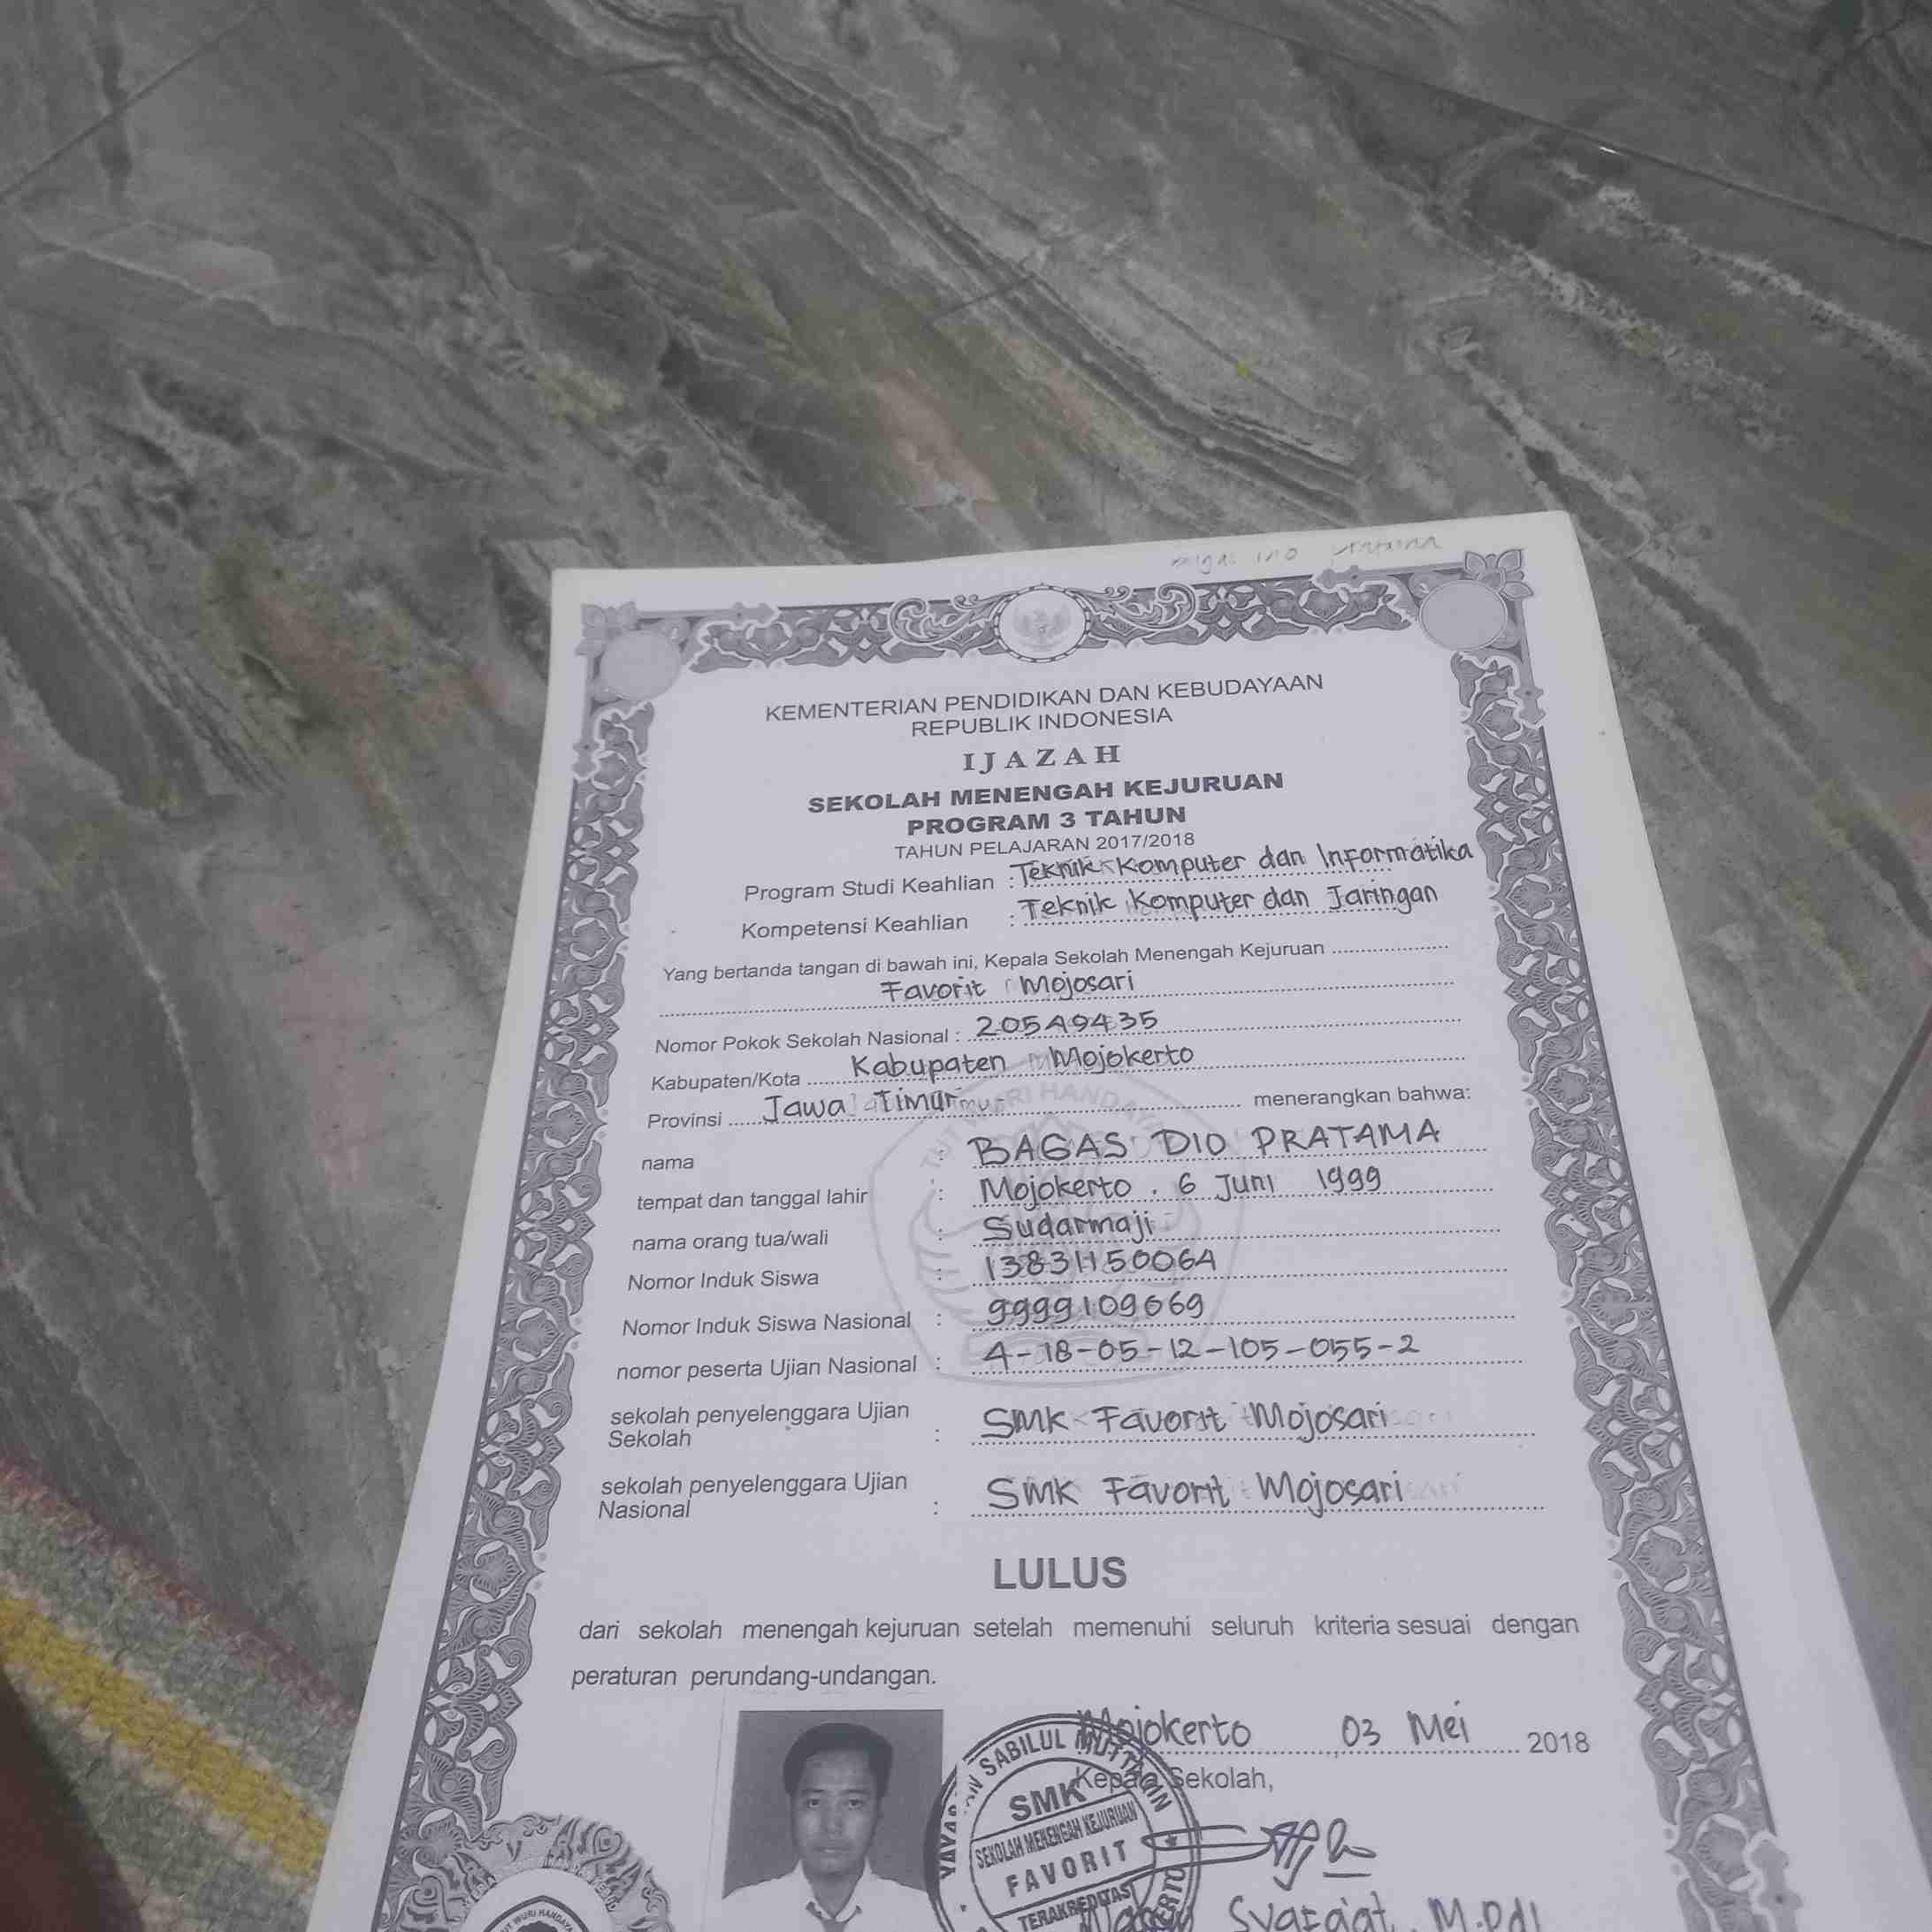 KEMENTERIAN PENDIDIKAN DAN KEBUDAYAAN
REPUBLIK INDONESIA
IJAZAH
SEKOLAH MENENGAH KEJURUAN
PROGRAM 3 TAHUN
TAHUN PELAJARAN 2017/2018
Program Studi Keahlian : Teknik Komputer dan Informatika
Kompetensi Keahlian : Teknik Komputer dan Jaringan
Yang bertanda tangan di bawah ini, Kepala Sekolah Menengah Kejuruan
Favorit Mojosari
Nomor Pokok Sekolah Nasional : 20549435
Kabupaten/Kota Kabupaten Mojokerto
Provinsi Jawa Timur menerangkan bahwa:
nama : BAGAS DIO PRATAMA
tempat dan tanggal lahir : Mojokerto, 6 Juni 1999
nama orang tua/wali : Sudarmaji
Nomor Induk Siswa : 13831150064
Nomor Induk Siswa Nasional : 9999109669
nomor peserta Ujian Nasional : 4-18-05-12-105-055-2
sekolah penyelenggara Ujian
Sekolah : SMK Favorit Mojosari
sekolah penyelenggara Ujian
Nasional : SMK Favorit Mojosari
LULUS
dari sekolah menengah kejuruan setelah memenuhi seluruh kriteria sesuai dengan
peraturan perundang-undangan.
Mojokerto 03 Mei 2018
Kepala Sekolah,
SABILUL MUTTAQIN
SMK
SEKOLAH MENENGAH KEJURUAN
FAVORIT
TERAKREDITASI
TUT WURI HANDAYANI
M.PdI